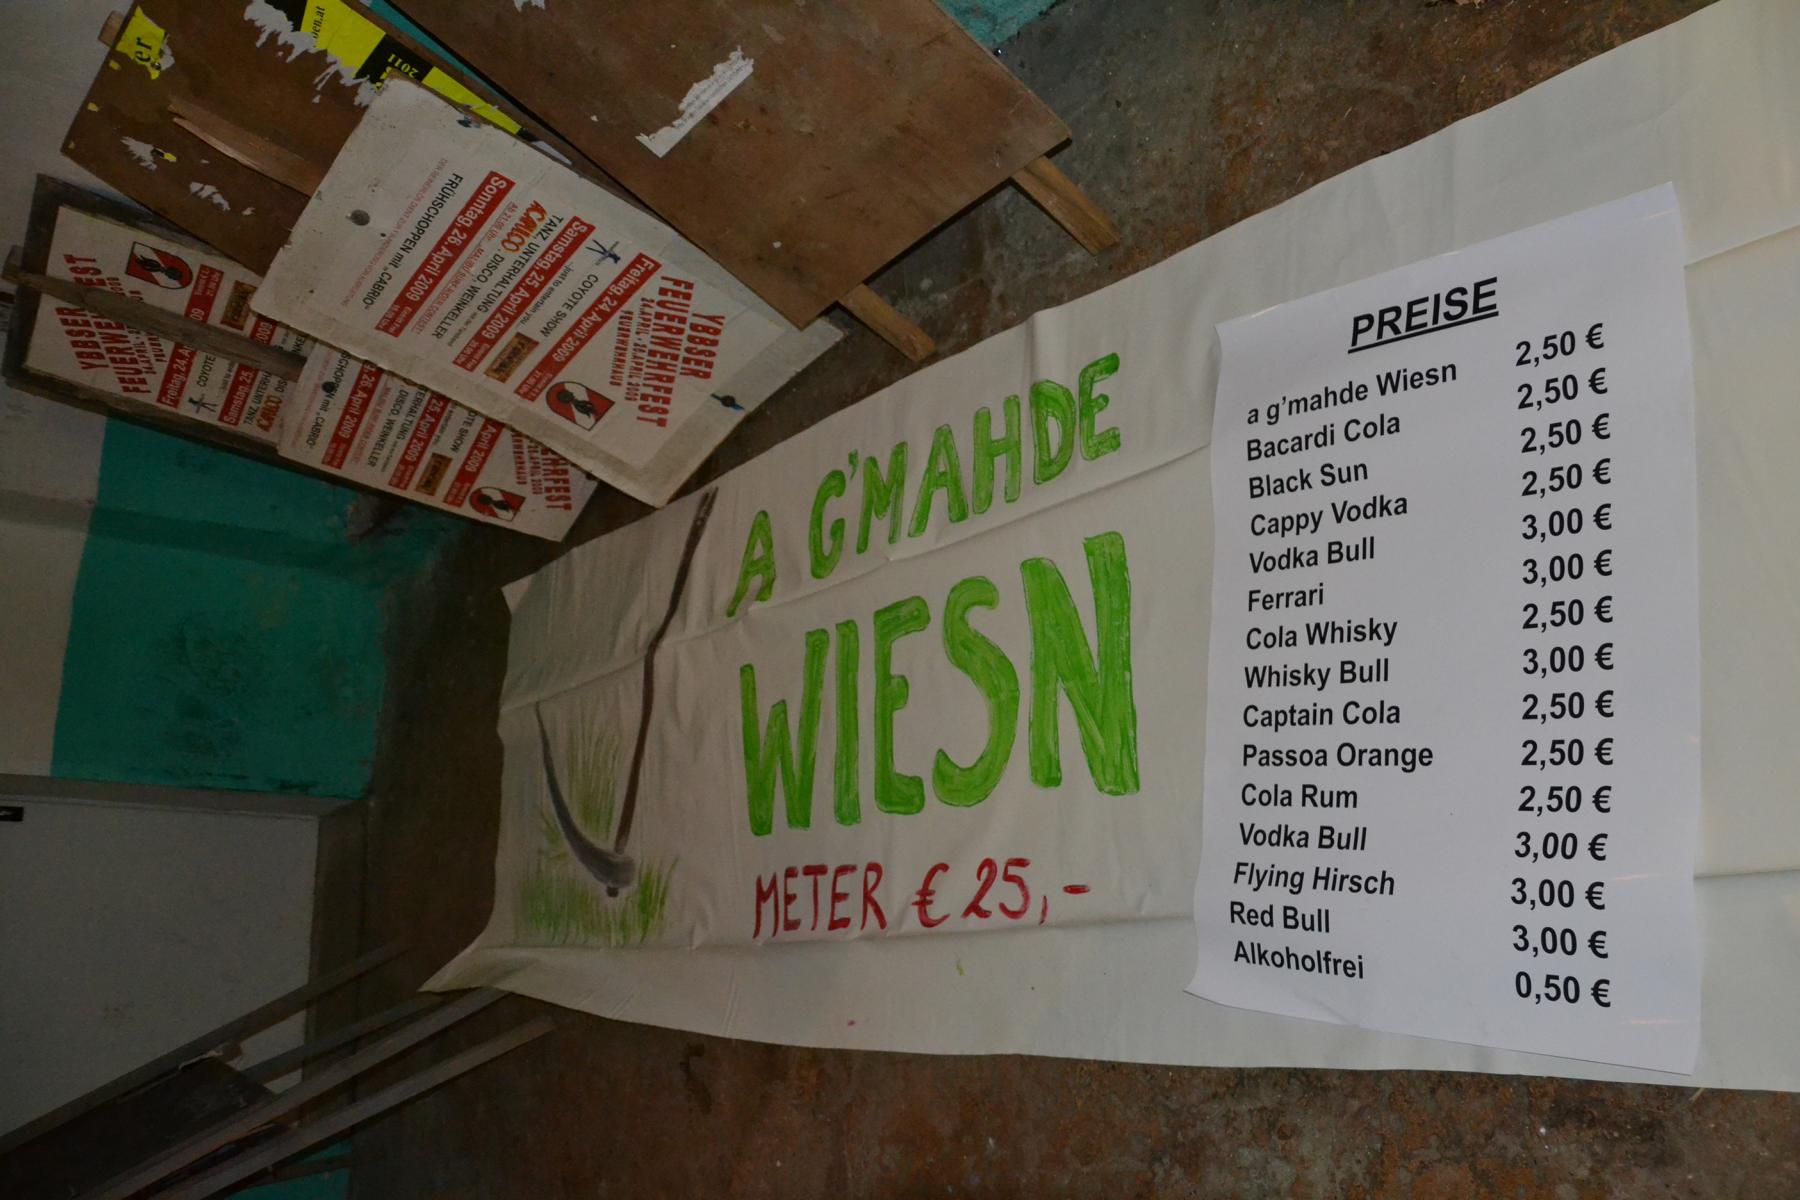 A G'MAHDE
WIESN
METER € 25,-
PREISE
a g'mahde Wiesn 2,50 €
Bacardi Cola 2,50 €
Black Sun 2,50 €
Cappy Vodka 2,50 €
Vodka Bull 3,00 €
Ferrari 3,00 €
Cola Whisky 2,50 €
Whisky Bull 3,00 €
Captain Cola 2,50 €
Passoa Orange 2,50 €
Cola Rum 2,50 €
Vodka Bull 3,00 €
Flying Hirsch 3,00 €
Red Bull 3,00 €
Alkoholfrei 0,50 €
YBBSER
FEUERWEHRFEST
24.APRIL - 26.APRIL 2009
FEUERWEHRHAUS
Freitag, 24. April 2009
COYOTE SHOW
...just to entertain you.
Samstag, 25. April 2009
TANZ UNTERHALTUNG
DISCO, WEINKELLER
Sonntag, 26. April 2009
FRÜHSCHOPPEN mit „CABRIO"
YBBSER
Freitag, 24.A
COYOTE
Samstag, 25.
TANZ UNTERHA
26. April 2009
DISCO, WEINKELLER
25. April 2009
OTE SHOW
April 2009
24.APRIL - 26.APRIL 2009
FEUERWEHRHAUS
2011
er